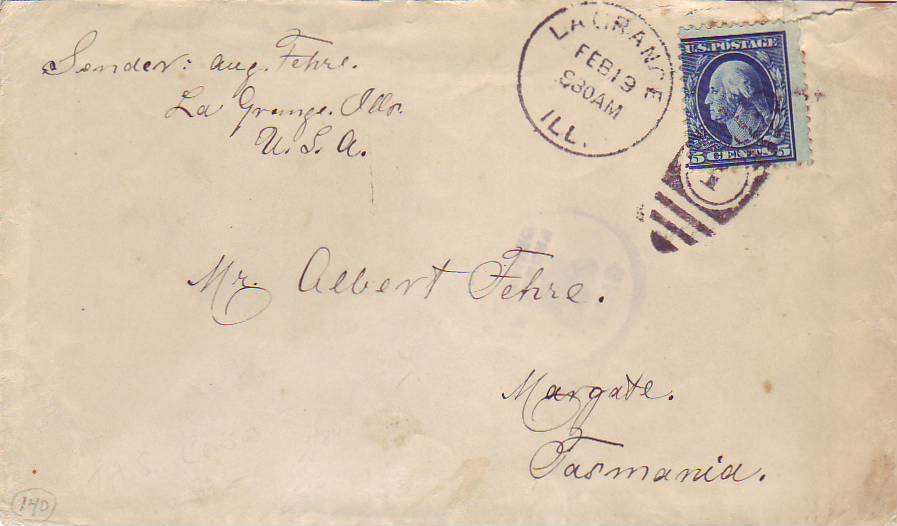 Sender: Aug. Fehre.
La Grange. Ills.
U. S. A.
LA GRANGE
FEB 19
930AM
ILL.
U.S. POSTAGE
5 CENTS 5
Mr. Albert Fehre.
Margate.
Tasmania.
140